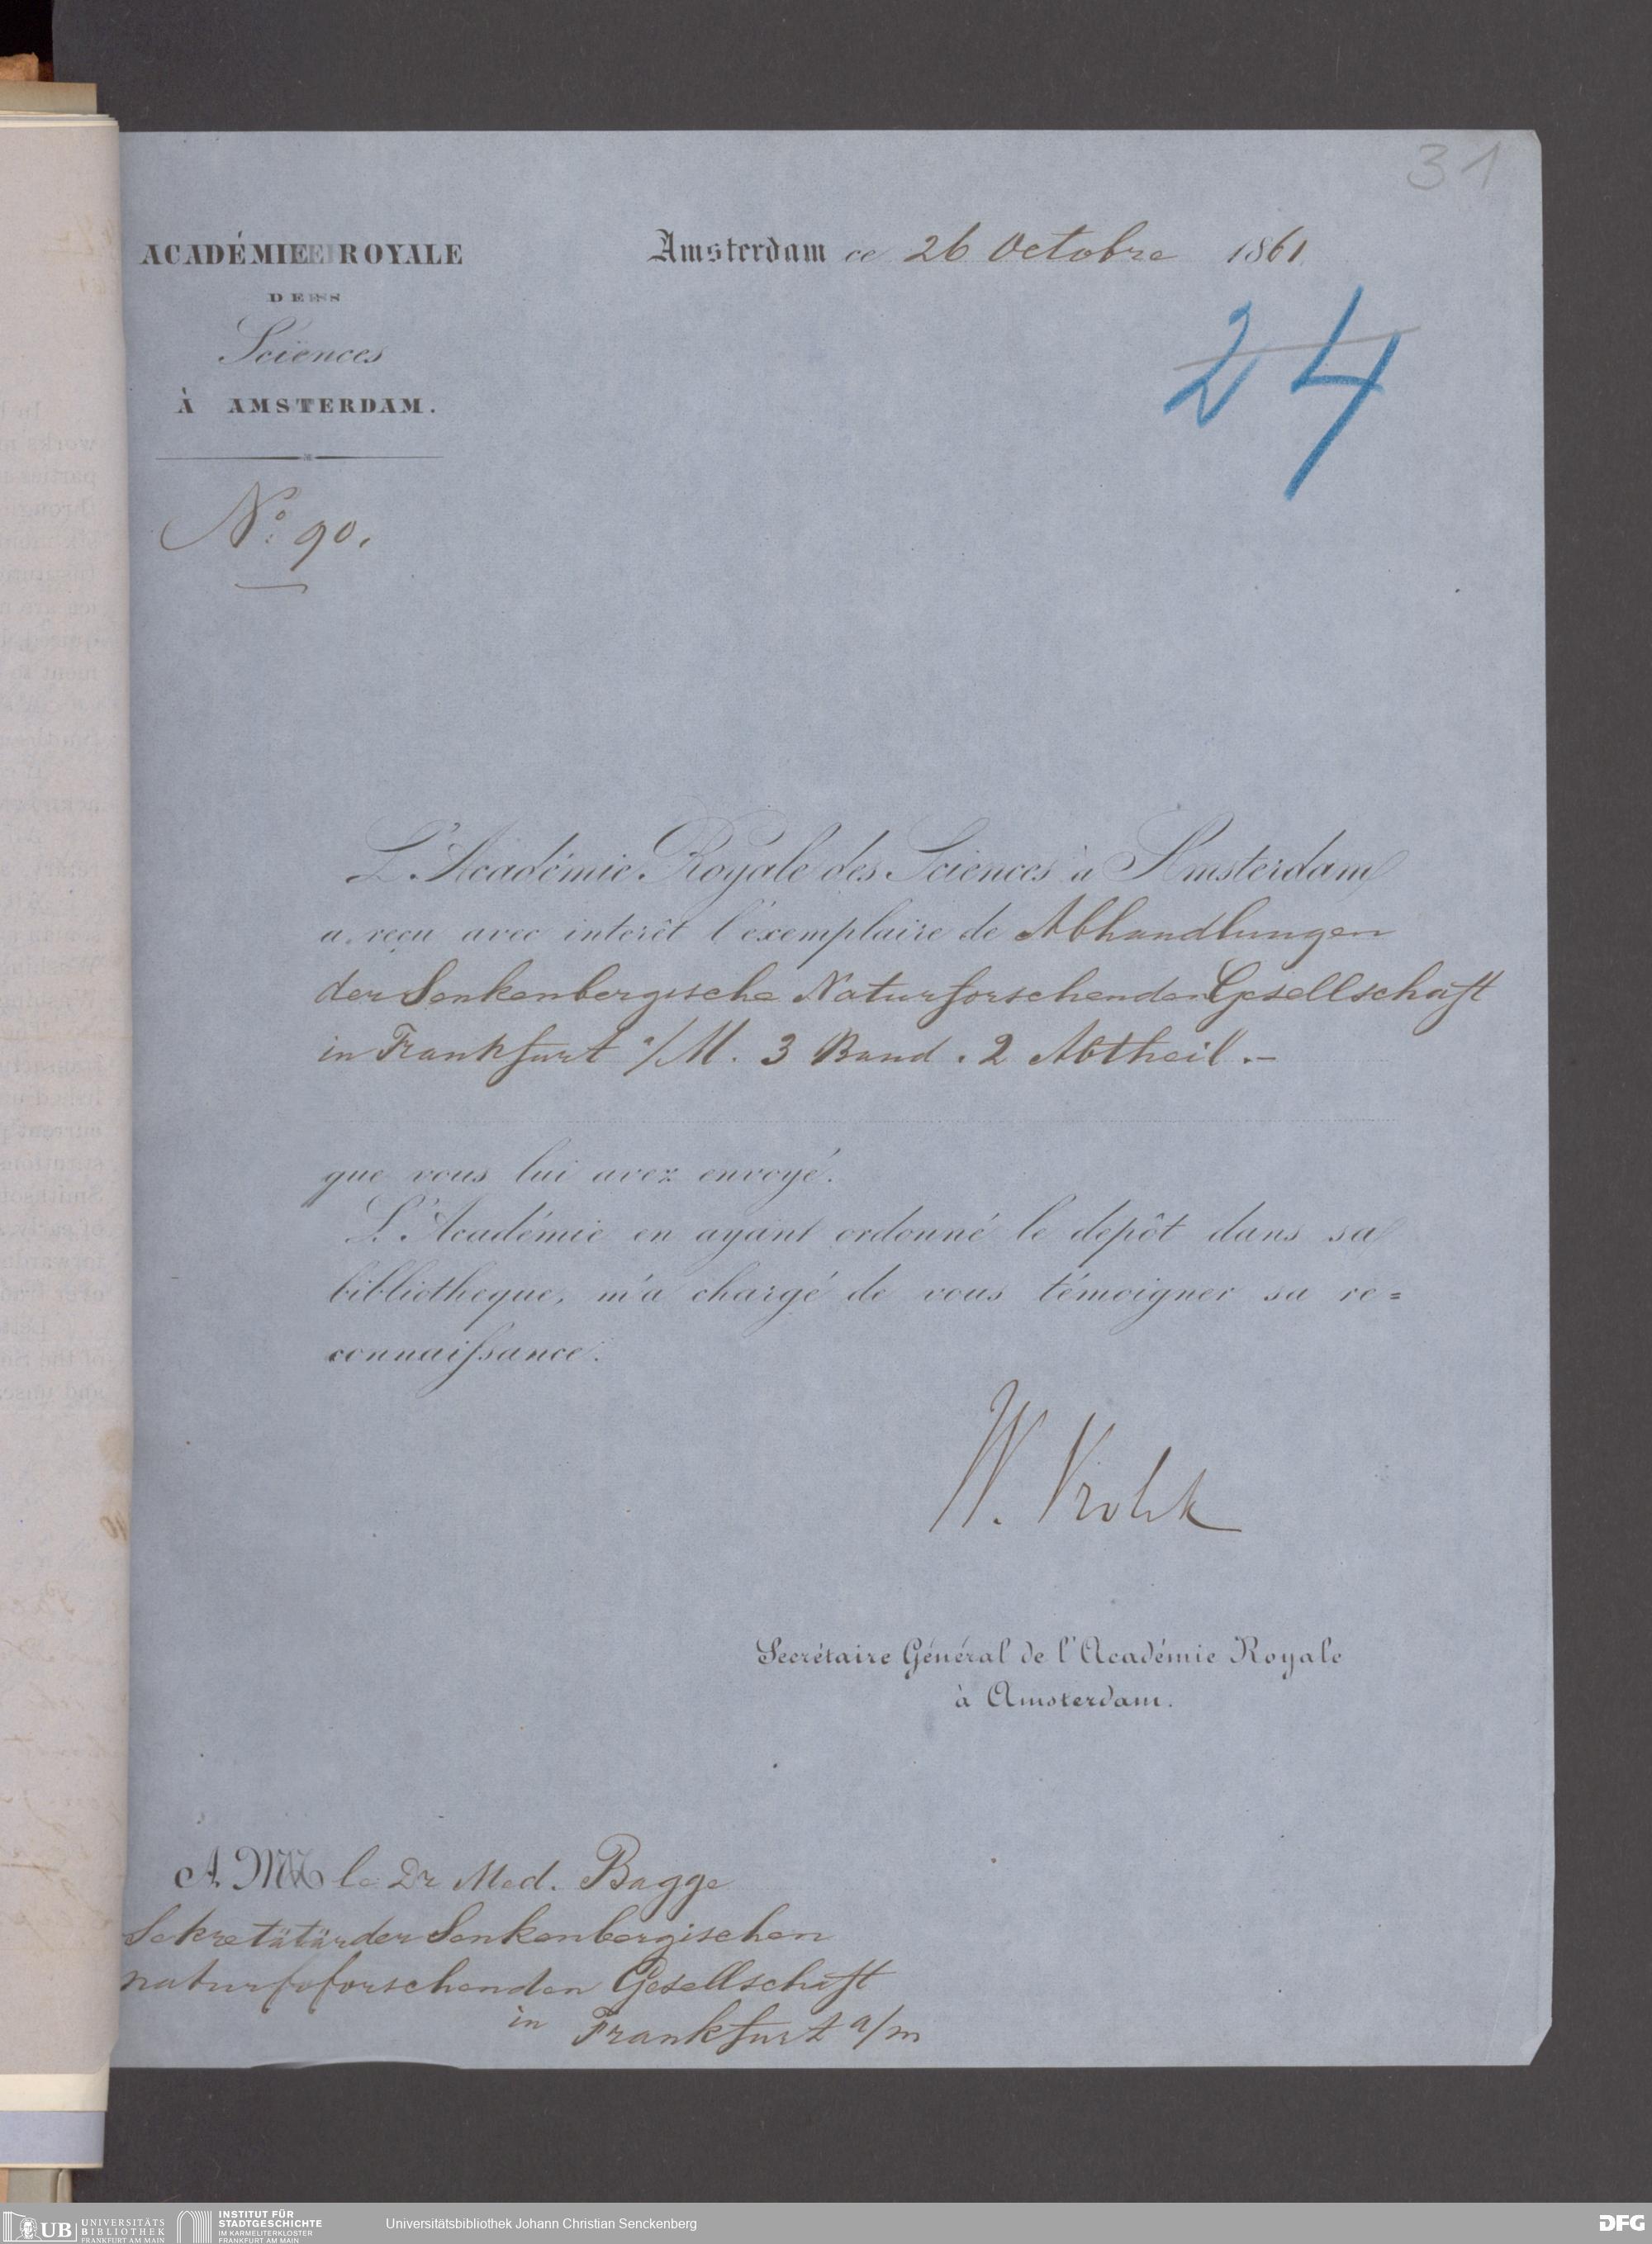 31
ACADÉMIE ROYALE
DES
Sciences
À AMSTERDAM.
Amsterdam ce 26 Octobre 1861
24
No: 90.
L'Académie Royale des Sciences à Amsterdam
a reçu avec interêt l'exemplaire de Abhandlungen
der Senkenbergische Naturforschenden Gesellschaft
in Frankfurt a/M. 3 Band. 2 Abtheil.-
que vous lui avez envoyé.
L'Académie en ayant ordonné le depôt dans sa
bibliotheque, m'a chargé de vous témoigner sa re=
connaissance.
W. Vrolik
Secrétaire Général de l'Académie Royale
à Amsterdam.
A. M le Dr Med. Bagge
Sekretätär der Senkenbergischen
naturfoforschenden Gesellschaft
in Frankfurt a/m
UB UNIVERSITÄTS
BIBLIOTHEK
FRANKFURT AM MAIN
INSTITUT FÜR
STADTGESCHICHTE
IM KARMELITERKLOSTER
FRANKFURT AM MAIN
Universitätsbibliothek Johann Christian Senckenberg
DFG